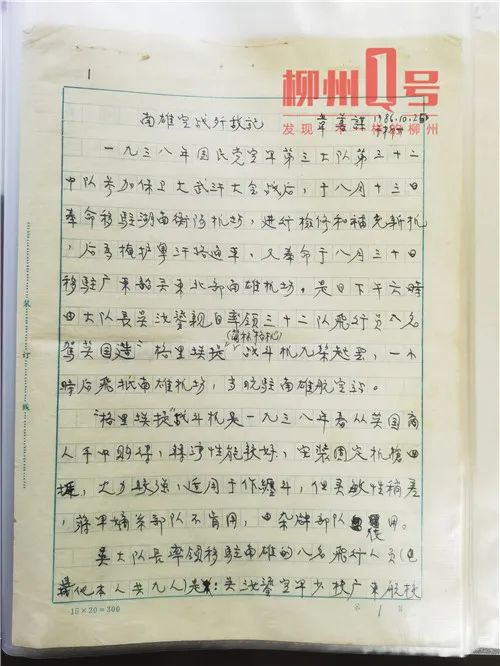 柳州1号
发现不一样的柳州
1
南雄空战纤援记
韦善谋 1986.10.25
一九三八年国民党空军第三大队第三十二
中队参加保卫大武汉大会战后，于八月十三日
奉命移驻湖南衡阳机场，进行检修和补充新机
，后为掩护粤汉路通车，又奉命于八月三十日
移驻广东韶关东北部南雄机场。是日下午六时
由大队长吴汝鎏亲自率领三十二队飞行员八名
驾英国造“格里埃提”战斗机九架起飞，一小
时后飞抵南雄机场，当晚驻南雄航空站。
“格里埃提”战斗机是一九三八年春从英国商
人手中购得，性能较好，安装固定机枪四
挺，火力较强，适用于作缠斗，但灵敏性稍差
，蒋军嫡系部队不肯用，由杂牌部队使用。
吴大队长率领移驻南雄的八名飞行人员（包
他本人共九人）是：吴汝鎏空军少校广东航校
装订线
15×20=300
第 1 页